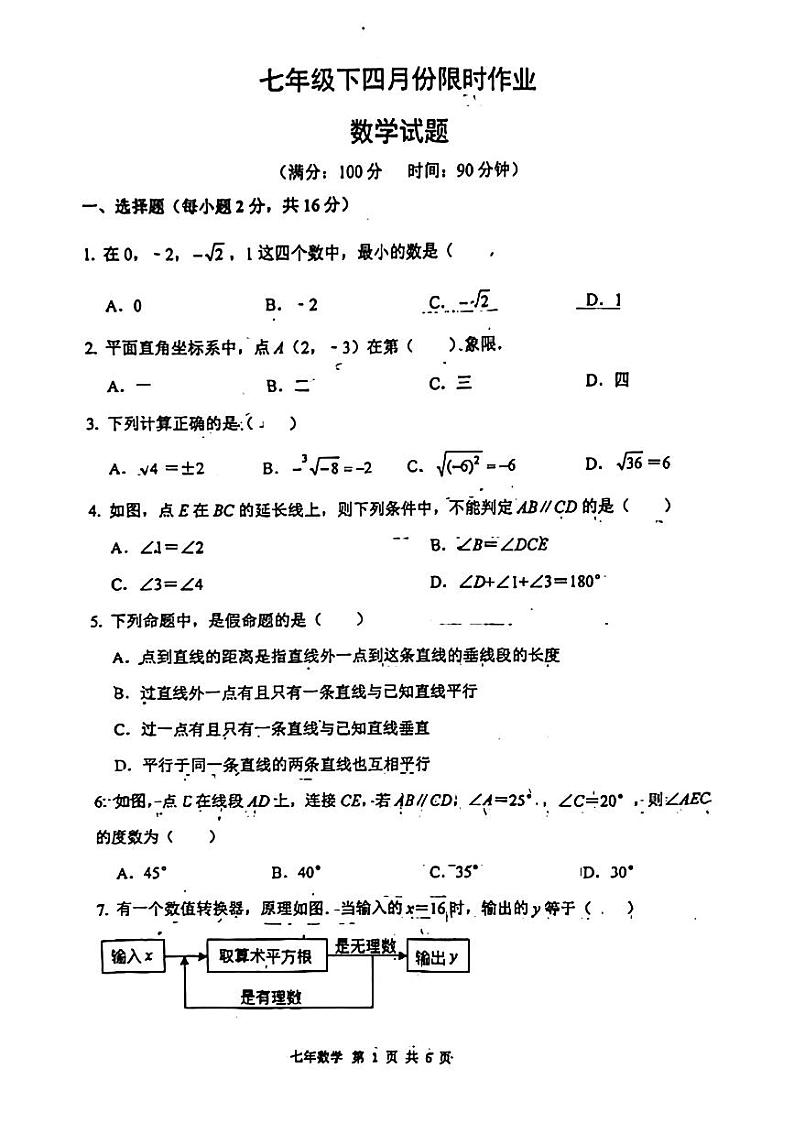 七年级下四月份限时作业
数学试题
（满分：100分 时间：90分钟）
一、选择题（每小题2分，共16分）
1. 在0，-2，-√2，1这四个数中，最小的数是（
A．0 B．-2 C．-√2 D．1
2. 平面直角坐标系中，点A（2，-3）在第（ ）象限．
A．一 B．二 C．三 D．四
3. 下列计算正确的是（ ）
A．√4 =±2 B．-³√-8 =-2 C．√(-6)² =-6 D．√36 =6
4. 如图，点E在BC的延长线上，则下列条件中，不能判定AB∥CD的是（ ）
A．∠1=∠2 B．∠B=∠DCE
C．∠3=∠4 D．∠D+∠1+∠3=180°
5. 下列命题中，是假命题的是（ ）
A．点到直线的距离是指直线外一点到这条直线的垂线段的长度
B．过直线外一点有且只有一条直线与已知直线平行
C．过一点有且只有一条直线与已知直线垂直
D．平行于同一条直线的两条直线也互相平行
6. 如图，点 在线段AD上，连接CE，若AB∥CD，∠A=25°，∠C=20°，则∠AEC
的度数为（ ）
A．45° B．40° C．35° D．30°
7. 有一个数值转换器，原理如图．当输入的x=16时，输出的y等于（ ）
输入x 取算术平方根 是无理数 输出y
是有理数
七年数学 第 1 页 共 6 页